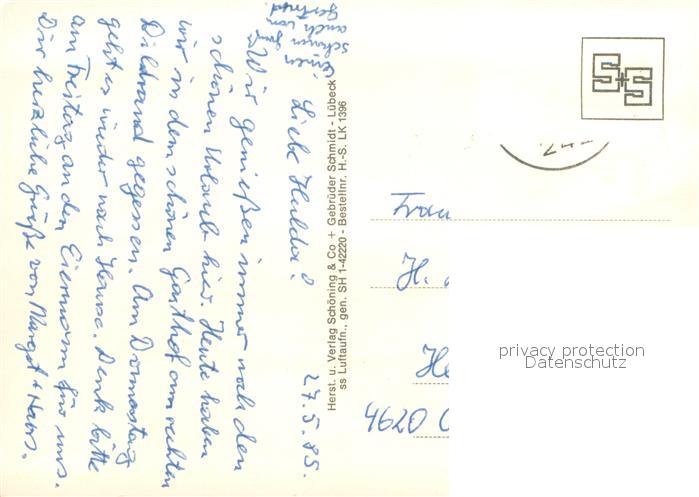 27.5.85.
Liebe Hulda!
Wir genießen immer noch den
schönen Urlaub hier. Heute haben
wir in dem schönen Gasthof am rechten
Bildrand gegessen. Am Donnerstag
geht es wieder nach Hause. Denk bitte
am Freitag an den Eiermann für uns.
Dir herzliche Grüße von Margot + Hans.
auch von
Gertrud
Herst. u. Verlag Schöning & Co + Gebrüder Schmidt - Lübeck
ss Luftaufn., gen. SH 1-42220 - Bestellnr. H.-S. LK 1396
S+S
Frau
H.
He
4620
privacy protection
Datenschutz